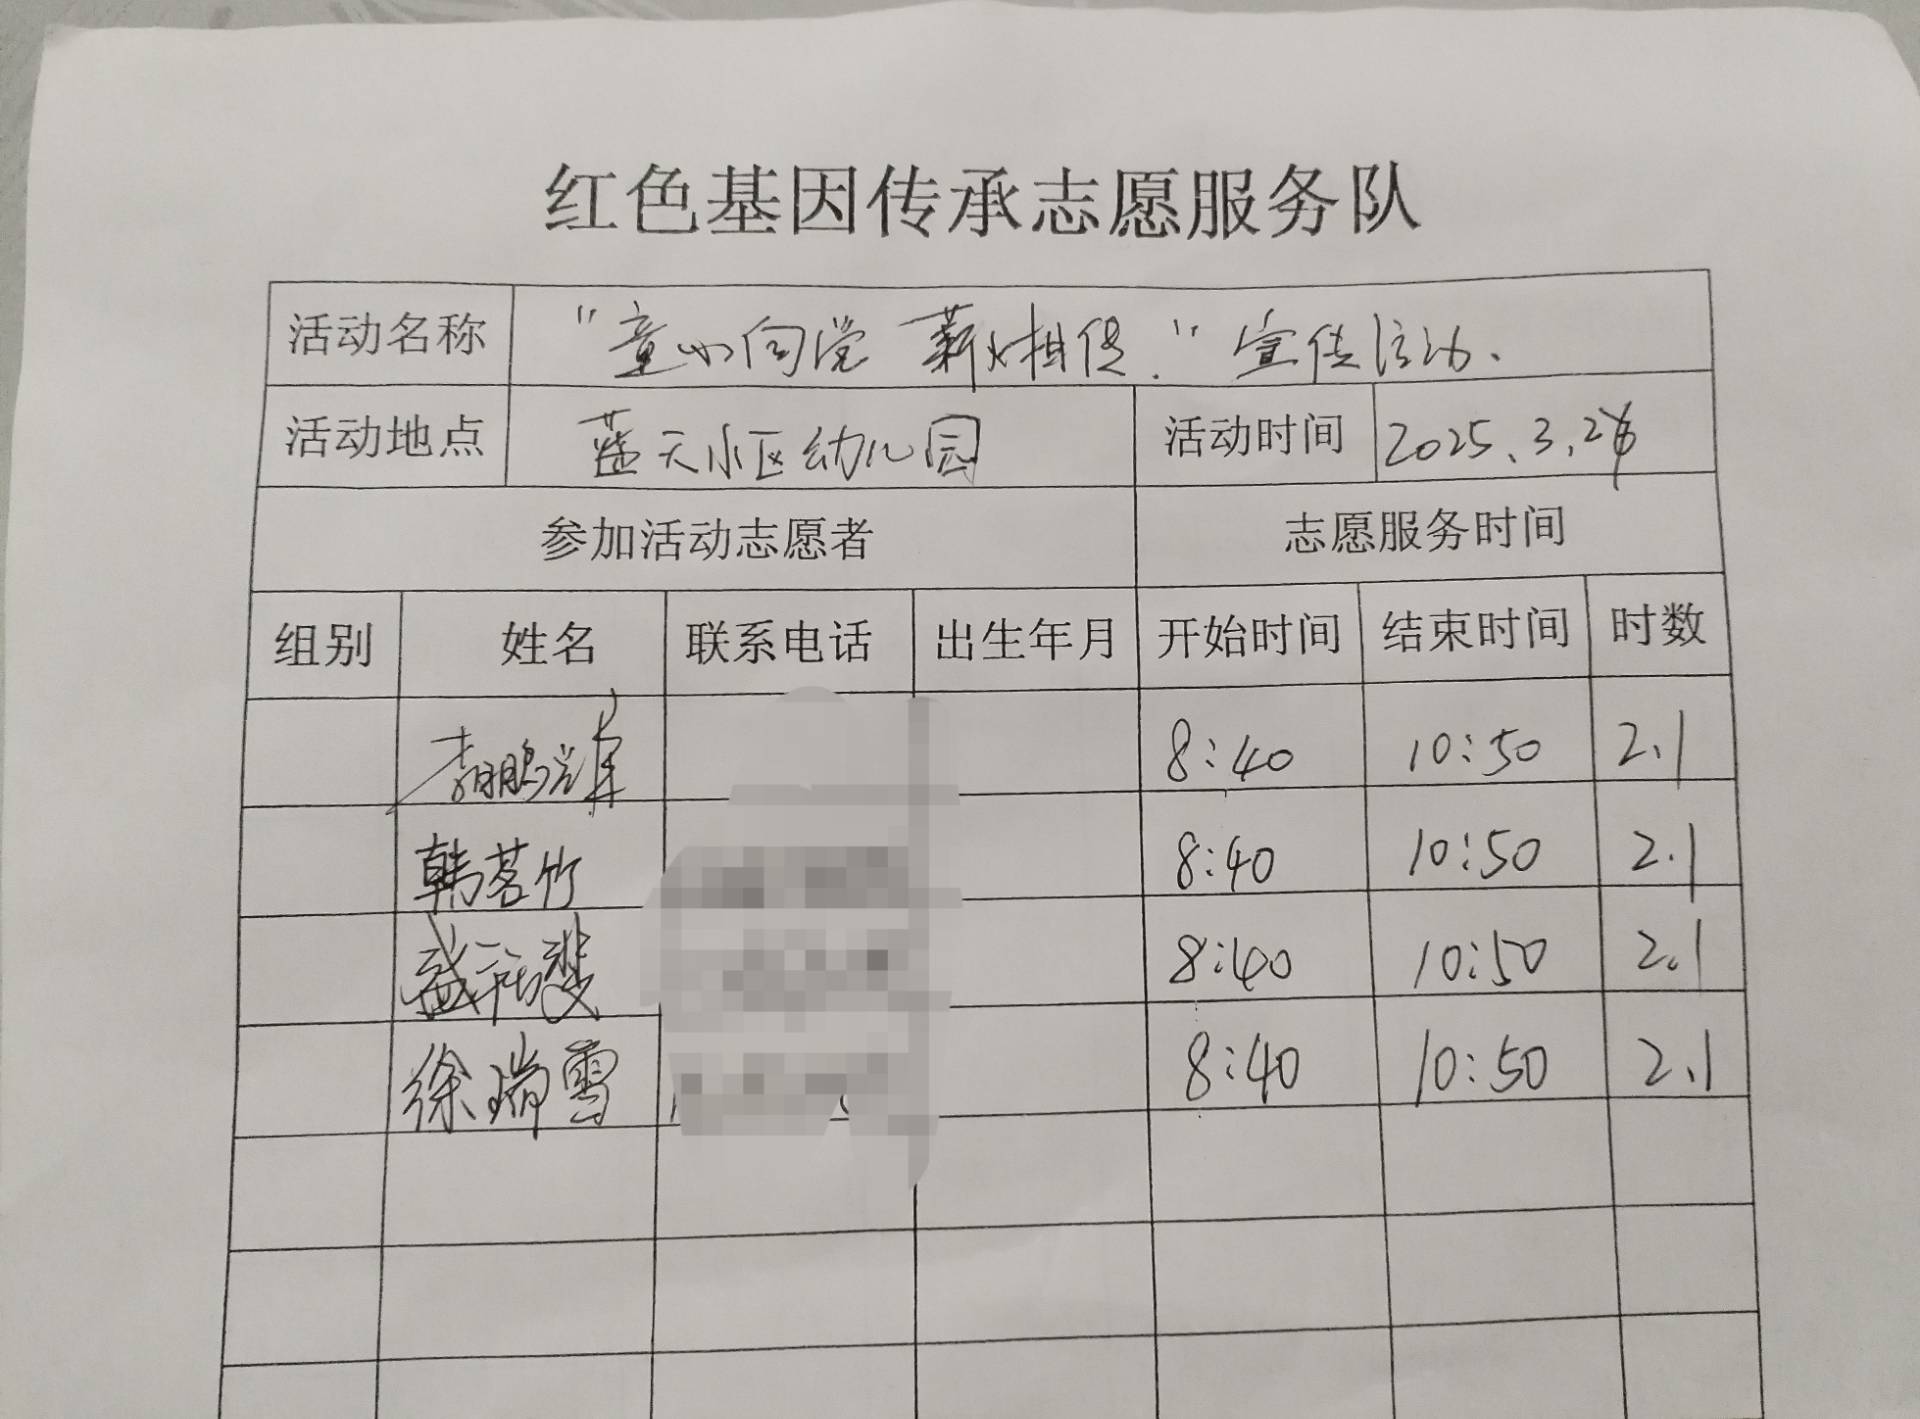 红色基因传承志愿服务队
活动名称 "童心向党 薪火相传." 宣传活动.
活动地点 蓝天小区幼儿园 活动时间 2025.3.26
参加活动志愿者 志愿服务时间
组别 姓名 联系电话 出生年月 开始时间 结束时间 时数
8:40 10:50 2.1
韩茗竹 8:40 10:50 2.1
8:40 10:50 2.1
徐瑞雪 8:40 10:50 2.1